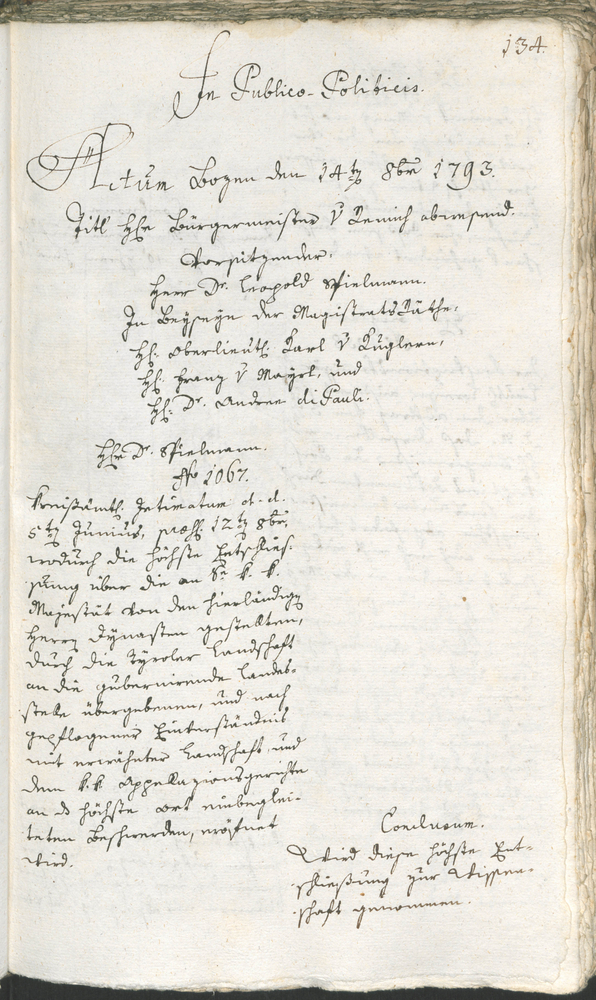 134.
In Publico-Politicis.
Actum Bozen den 14tn 8br 1793.
Titl Hr Bürgermeister v Remich abwesend.
Vorsitzender.
Herr Dr. Leopold Spielmann.
In Beyseyn der Magistrats Räthe,
H: Oberlieut: Karl v Kuglern,
H: Franz v Mayrl, und
H: Dr. Andree di Pauli.
Hr Dr. Spielmann.
No 1067.
Kreisämtl. Intimatum d. d.
5tn Junius, 12tn 8br,
wodurch die höchste Entschlies-
sung über die an Se k. k.
Majestät von den hierländign
Herrn Dynasten gestellten,
durch die Tyroler Landschaft
an die gubernirende Landes-
stelle übergebenen, und nach
gepflogener Einverständniß
mit erwähnter Landschaft und
dem k. k. Appellazionsgerichte
an d höchste Ort einbeglei-
teten Beschwerden, eröfnet
wird.
Conclusum.
Wird diese höchste Ent-
schließung zur Wissen-
schaft genommen.